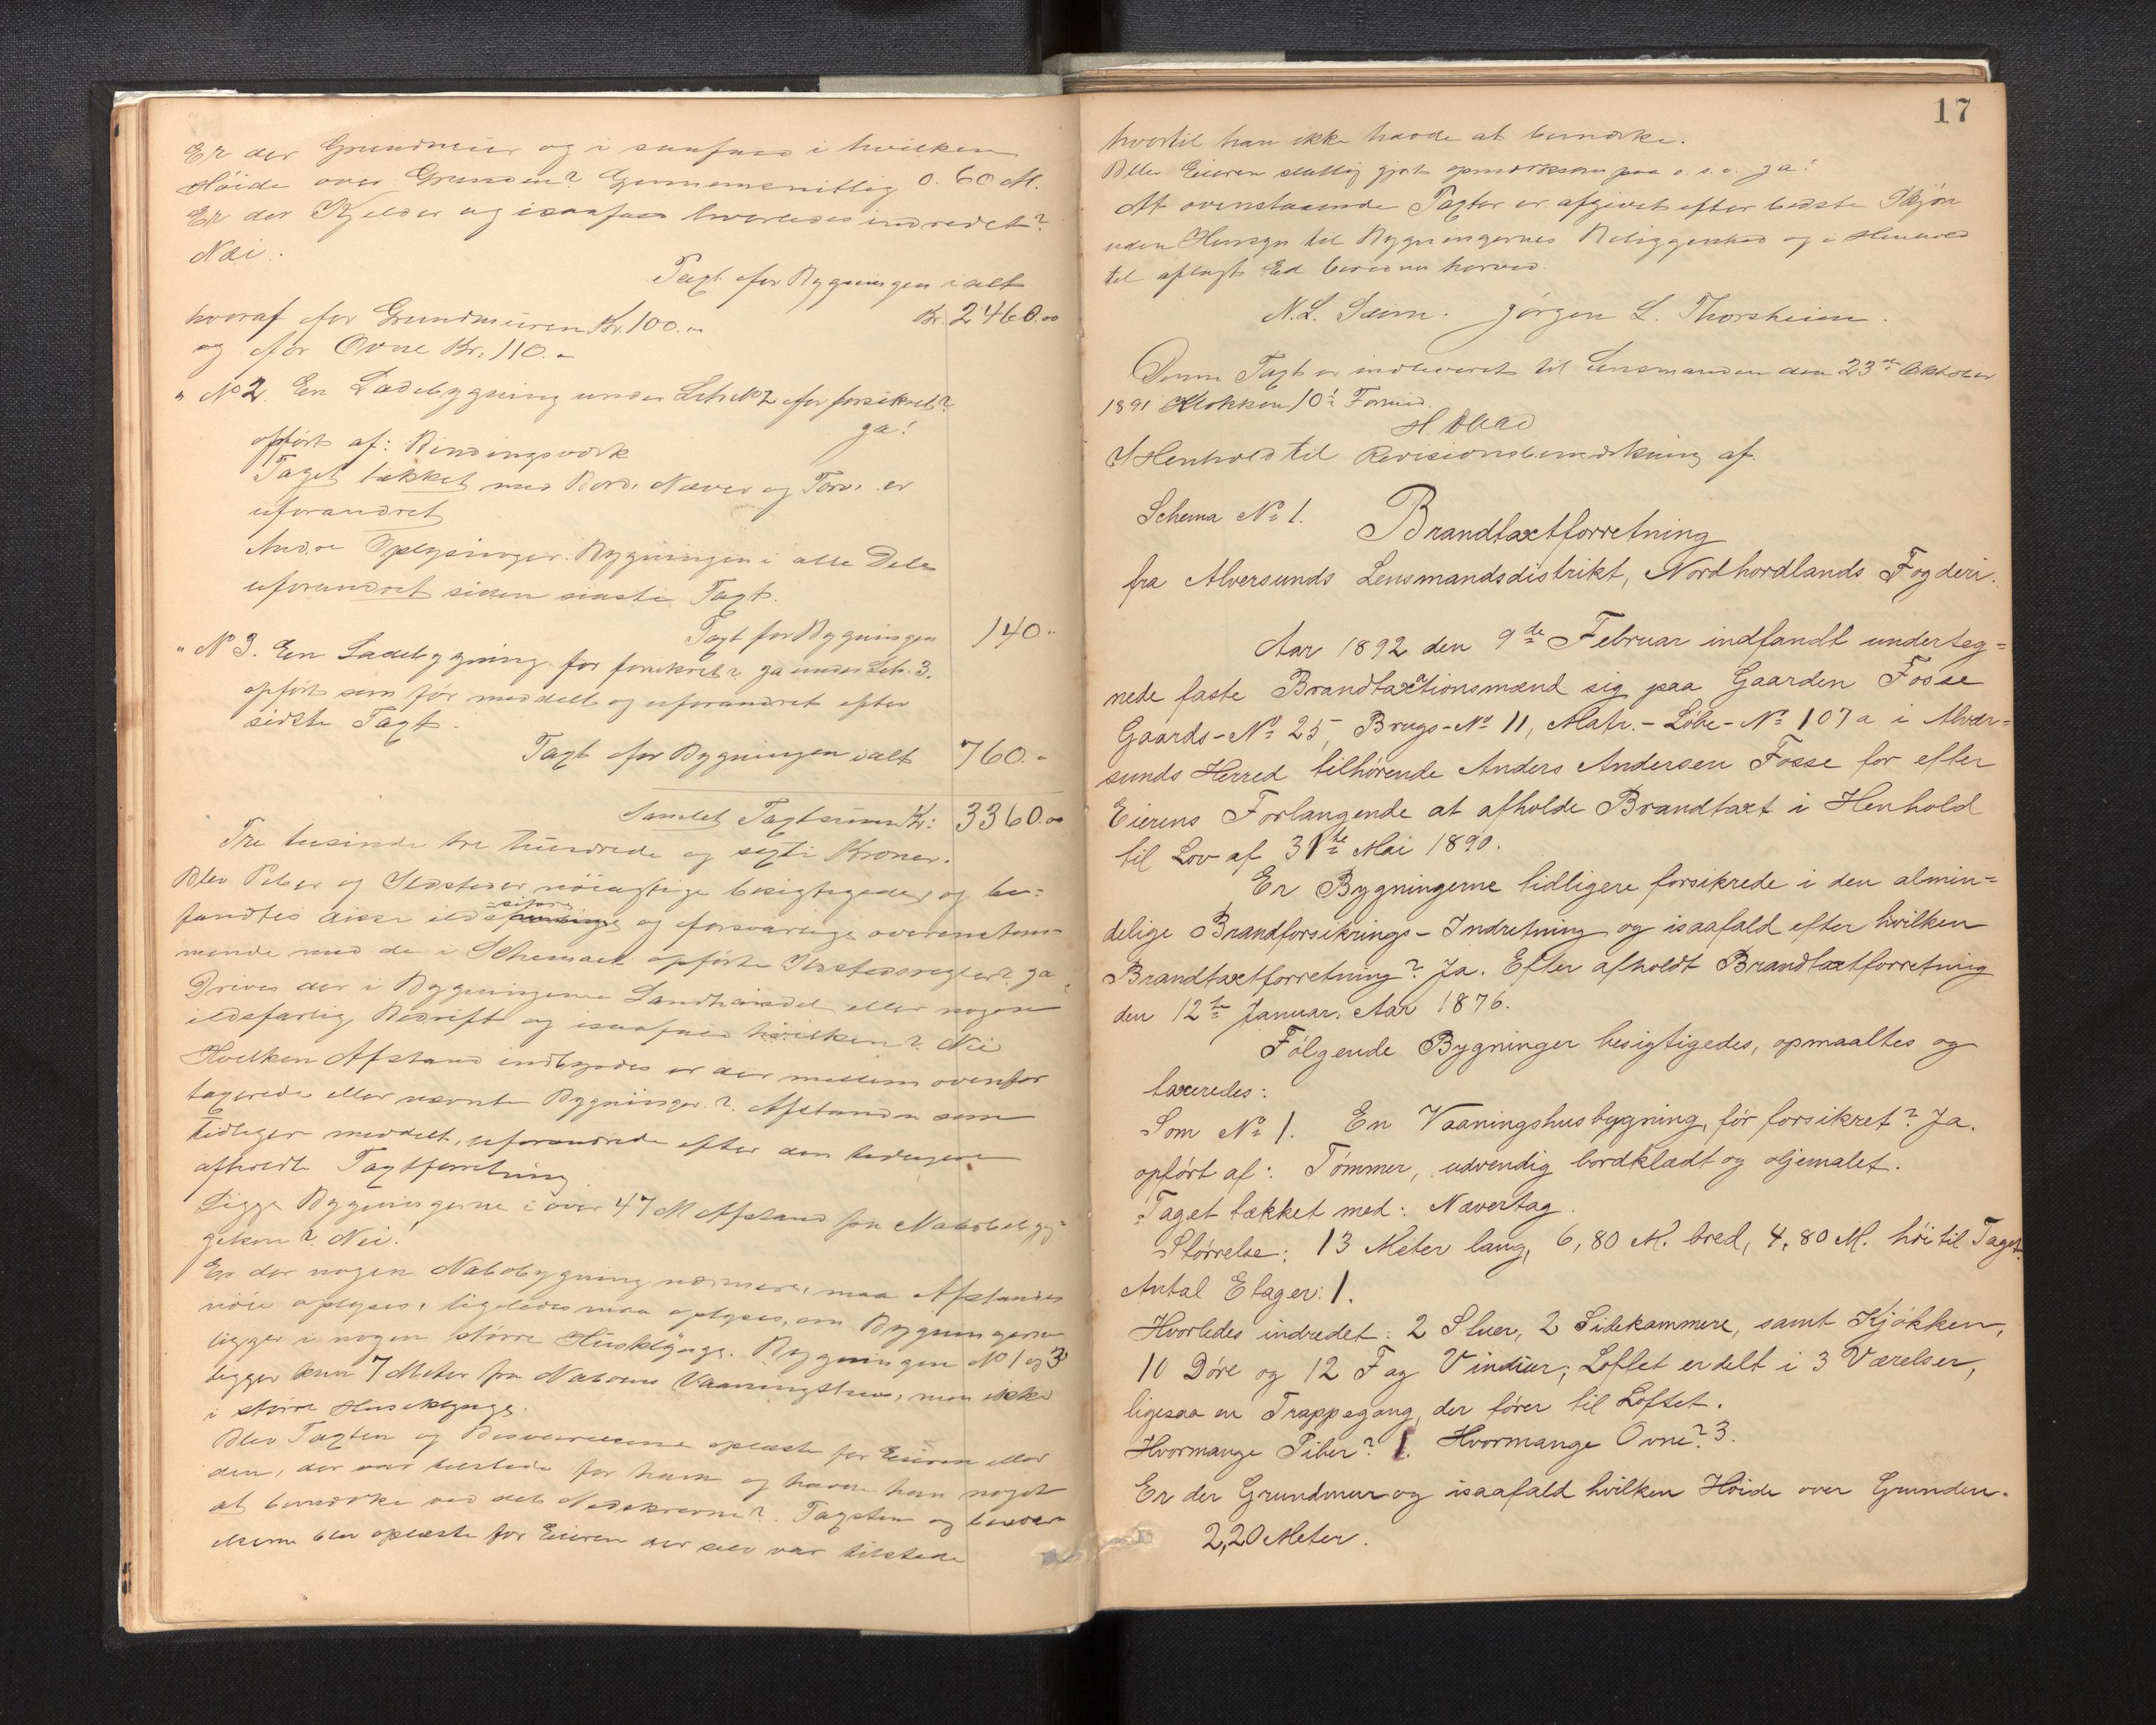 Er der Grundmur og i saafald i hvilken
Høide over Grunden? Gjennemsnitlig 0.60 M.
Er der Kjelder og isaafald hvorledes indredet?
Nei.
Taxt for Bygningen ialt
Kr. 2460.00
hvoraf for Grundmuren Kr. 100. "
og for Ovne Kr. 110. "
" No 2. En Ladebygning under Litr. No 2 før forsikret?
Ja!
opført af: Bindingsværk
Taget tækket med Bord, Næver og Torv. er
uforandret
Andre Oplysninger. Bygningen i alle Dele
uforandret siden sidste Taxt.
Taxt for Bygningen 140 "
" N 3. En Ladebygning før forsikret? Ja under Litr. 3.
opført som før meddelt og uforandret efter
sidste Taxt.
Taxt for Bygningen ialt 760. "
Samlet Taxtsum Kr: 3360.00
Tre tusinde tre hundrede og sexti Kroner.
Blev Piber og Ildsteder nøiagtige besigtigede, og be=
fandtes disse ilds sikre og forsvarlige overenstem-
mende med de i Schemaet opførte Ildstedsregler? Ja
Drives der i Bygningerne Landhandel eller nogen
ildsfarlig Bedrift og isaafald hvilken? Nei
Hvilken Afstand indbyrdes er der mellem ovenfor
taxerede eller nævnte Bygninger? Afstanden som
tidligere meddelt, uforandrede efter den tidligere
afholdte Taxtforretning
Ligge Bygningerne i over 47 M Afstand fra Nabobebyg=
gelsen? Nei!
Er der nogen Nabobygning nærmere, maa Afstanden
nøie oplyses, ligeledes maa oplyses, om Bygningerne
ligger i nogen større Husklynge. Bygningen No 1 og 3
ligger kun 7 Meter fra Naboens Vaaningshus, men ikke
i større Husklynge.
Blev Taxten og Besvarelserne oplæste for Eieren eller
den, der var tilstede for ham og havde han noget
at bemærke ved det Nedskrevne? Taxten og besvar
elserne blev oplæste for Eieren der selv var tilstede
17
hvortil han ikke havde at bemærke.
Blev Eieren skattlig gjort opmærksom paa o. s. v. Ja!
At ovenstaaende Taxter er afgivet efter bedste Skjøn
uden Hensyn til Bygningernes Beliggenhed og i Henhold
til aflagt Ed bevidnes herved.
N. L. Seim. Jørgen L. Thorsheim.
Denne Taxt er indleveret til Lensmanden den 23de Oktober
1891 Klokken 10 Formid.
I Henhold til Revisionsbemærkning af
Schema No 1.
Brandtaxtforretning
fra Alversunds Lensmandsdistrikt, Nordhordlands Fogderi.
Aar 1892 den 9de Februar indfandt underteg=
nede faste Brandtaxtionsmænd sig paa Gaarden Fosse
Gaards-No 25, Brugs-No 11, Matr.-Løbe-No 107a i Alver=
sunds Herred tilhørende Anders Andersen Fosse for efter
Eierens Forlangende at afholde Brandtaxt i Henhold
til Lov af 31te Mai 1890.
Er Bygningerne tidligere forsikrede i den almin=
delige Brandforsikrings-Indretning og isaafald efter hvilken
Brandtaxtforretning? Ja. Efter afholdt Brandtaxtforretning
den 12te Januar. Aar 1876.
Følgende Bygninger besigtigedes, opmaaltes og
taxeredes:
Som No 1. En Vaaningshusbygning, før forsikret? Ja.
opført af: Tømmer, udvendig bordklædt og oljemalet.
Taget tækket med: Nævertag.
Størrelse: 13 Meter lang, 6,80 M. bred, 4,80 M. høi til Taget.
Antal Etager: 1.
Hvorledes indredet: 2 Stuer, 2 Sidekammere, samt Kjøkken,
10 Døre og 12 Fag Vinduer; Loftet er delt i 3 Værelser,
ligesaa en Trappegang, der fører til Loftet.
Hvormange Piber? 1. Hvormange Ovne? 3.
Er der Grundmur og isaafald hvilken Høide over Grunden.
2,20 Meter.